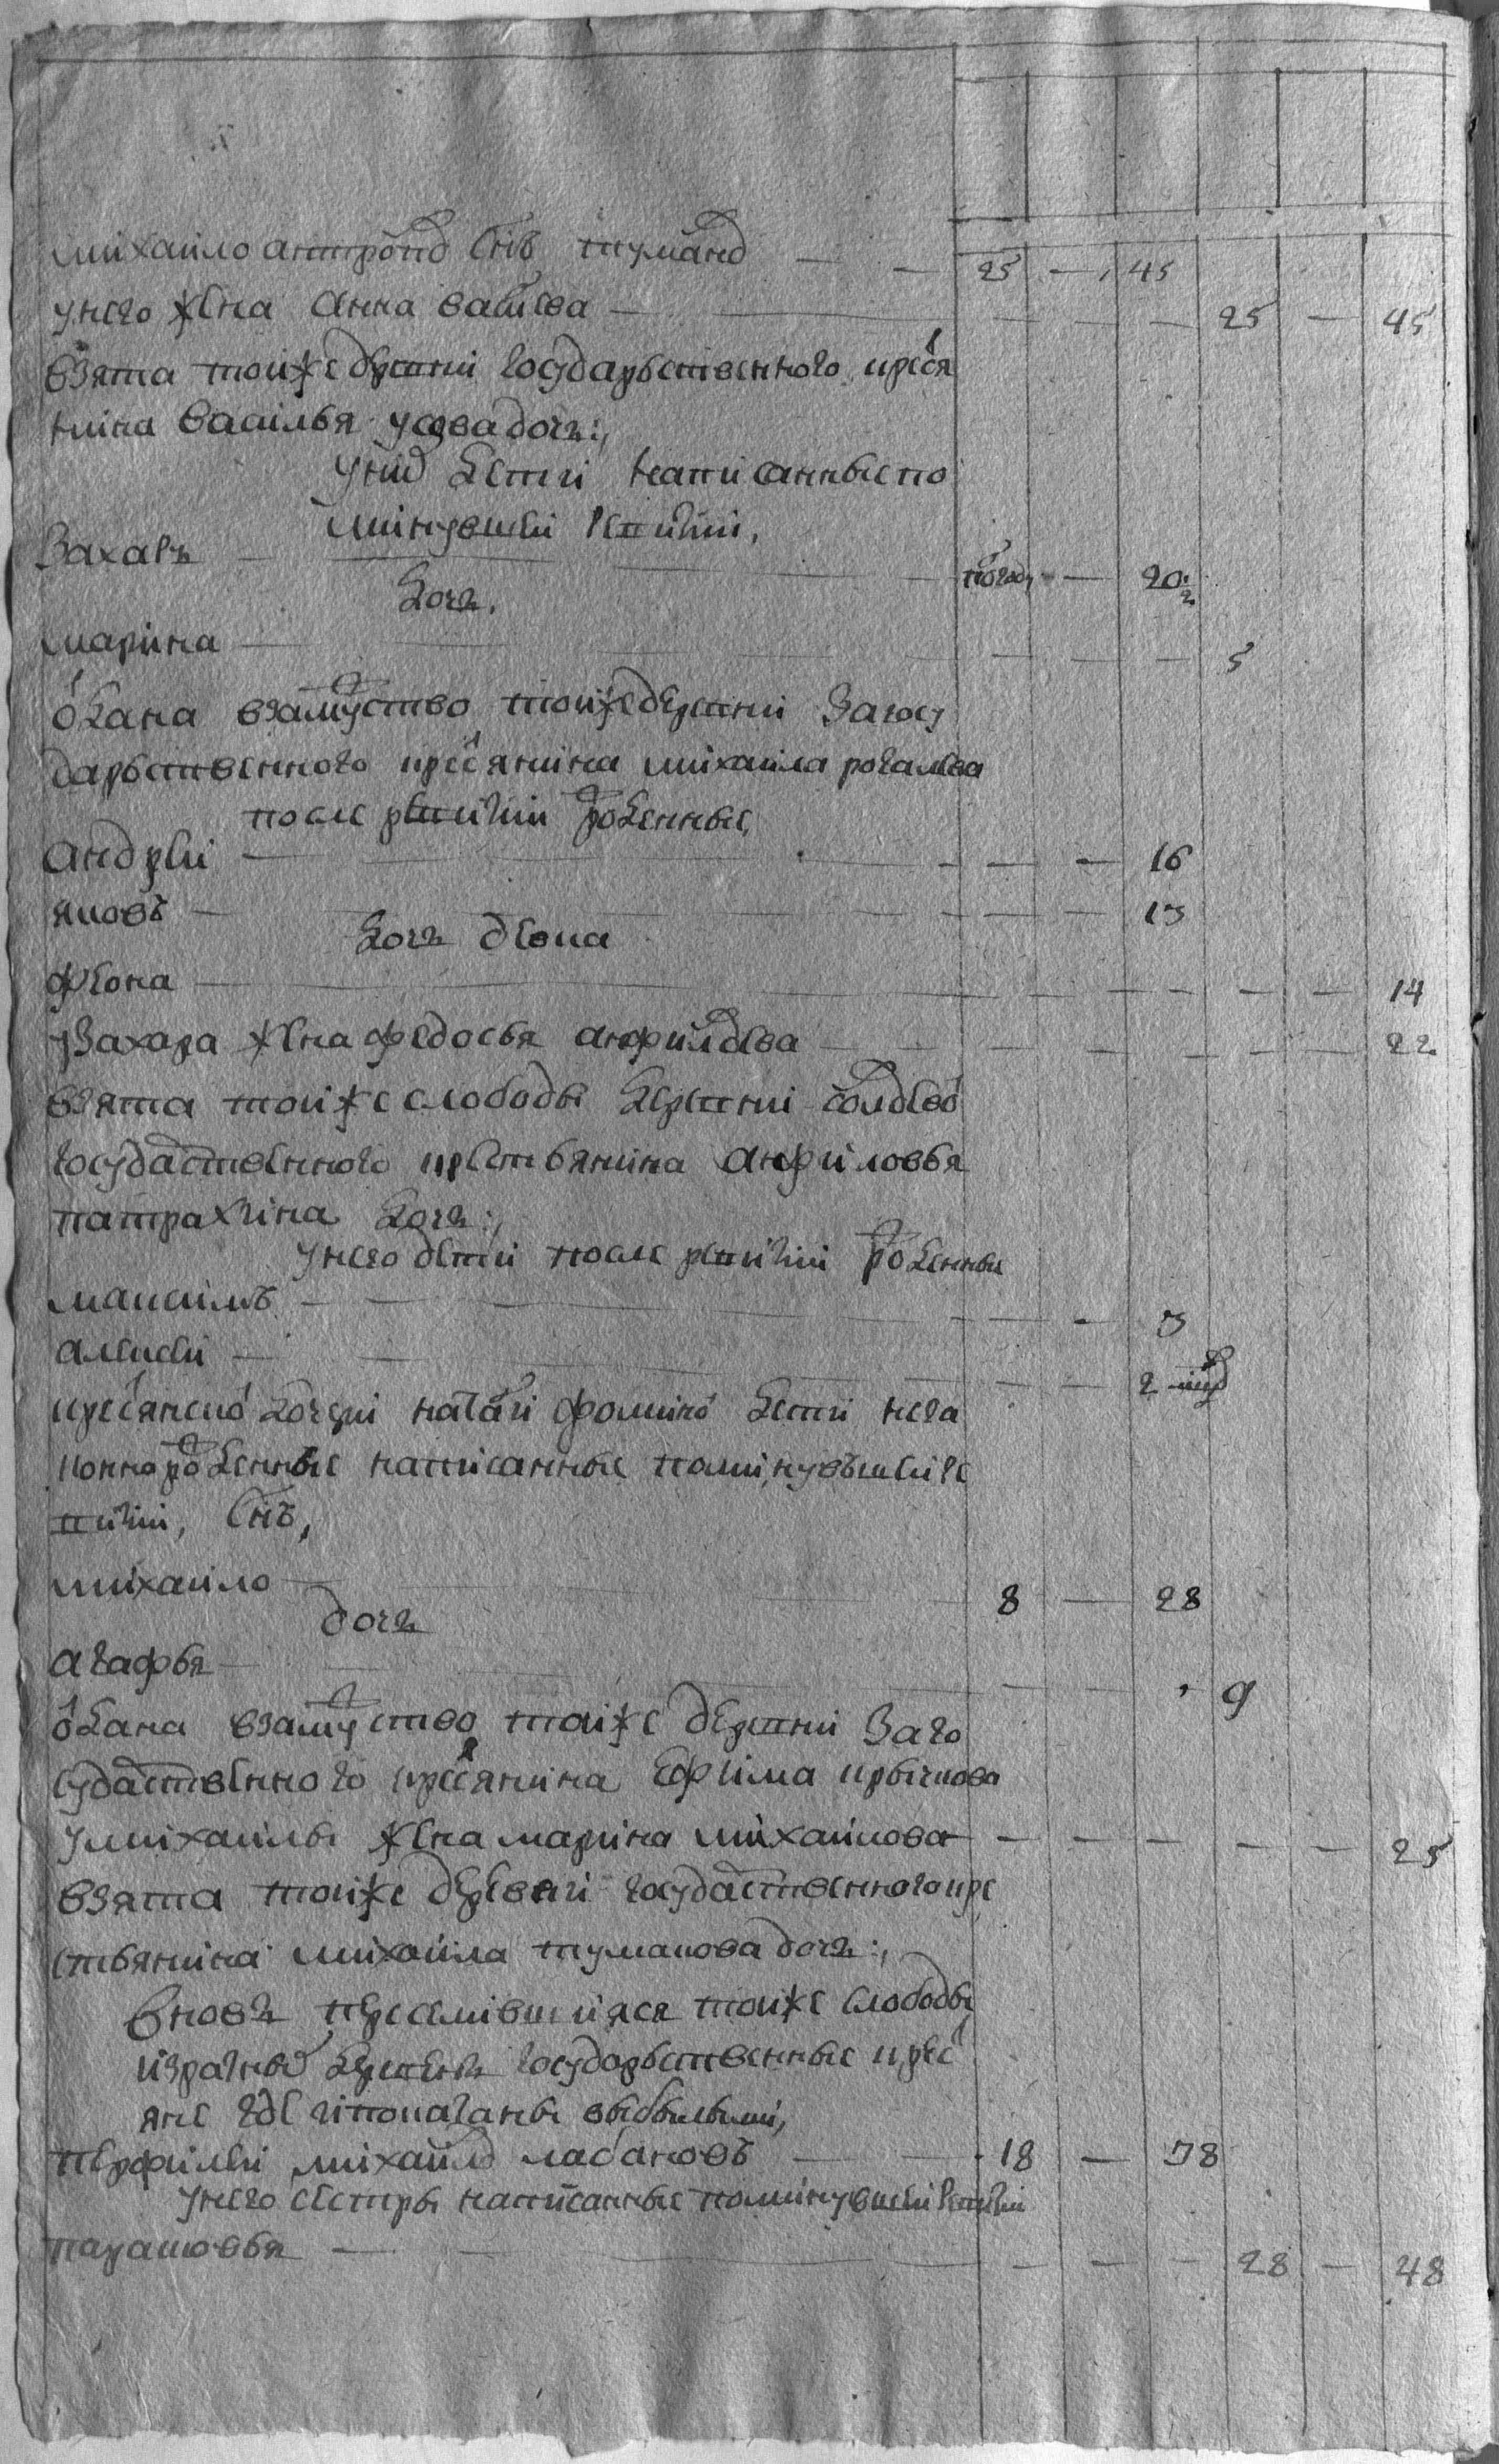 михаило антропо снъ тумано — — 25 — 45
унего жена анна васильева — — 25 — 45
взята тоиже дрвни государьственного кресья
нина василья дочь:,
унихъ дети написанные по
минувшеи ревизии,
Захаръ — полгоду — 20 1/2
дочь,
марина — 5
одана взамужство тоиже деревни загосу
дарьственного кресьянина михаила рогалева
после ревизии рожденные,
андреи — 16
яковъ — 13
дочь девка
феона — 14
узахара жена федосья анфилофьева — 22
взята тоиже слободы деревни
государственного крестьянина анфиловья
патрахина дочь:,
унего дети после ревизии рожденные
максимъ — 3
алексеи — 2 нед
кресьянской дочери наталии фоминой дети неза
коннорожденные написанные поминувъшеи ре
визии, снъ,
михаило — 8 — 28
дочь
агафья — 9
одана взамужство тоиже деревни Заго
сударственного кресьянина ефима крычкова
умихаилы жена марина михаилова — 25
взята тоиже деревни государственного кре
стьянина михаила туманова дочь:,
Вновь переселившиися тоиже слободы
изразныхъ деревень государьственные кресьт
яне где ипоказаны выбылыми,
перфилеи михаило лабановъ — 18 — 38
унего сестры написанные поминувшеи ревизии
парасковья — 28 — 48